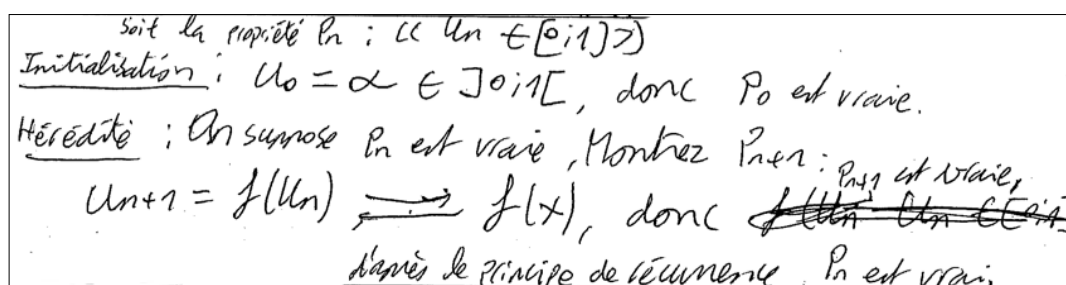 soit la propriété Pn : << Un ∈ [0;1] >>
Initialisation : U0 = α ∈ ]0;1[, donc P0 est vraie.
Hérédité : On suppose Pn est vraie, Montrez Pn+1 :
Un+1 = f(Un) ⇄ f(x), donc Pn+1 est vraie,
d'après le principe de récurrence, Pn est vrai.